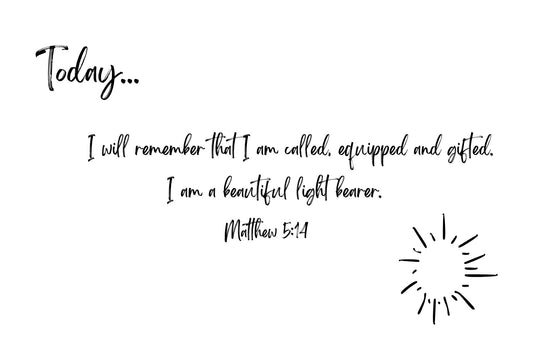 Today...
I will remember that I am called, equipped and gifted.
I am a beautiful light bearer.
Matthew 5:14